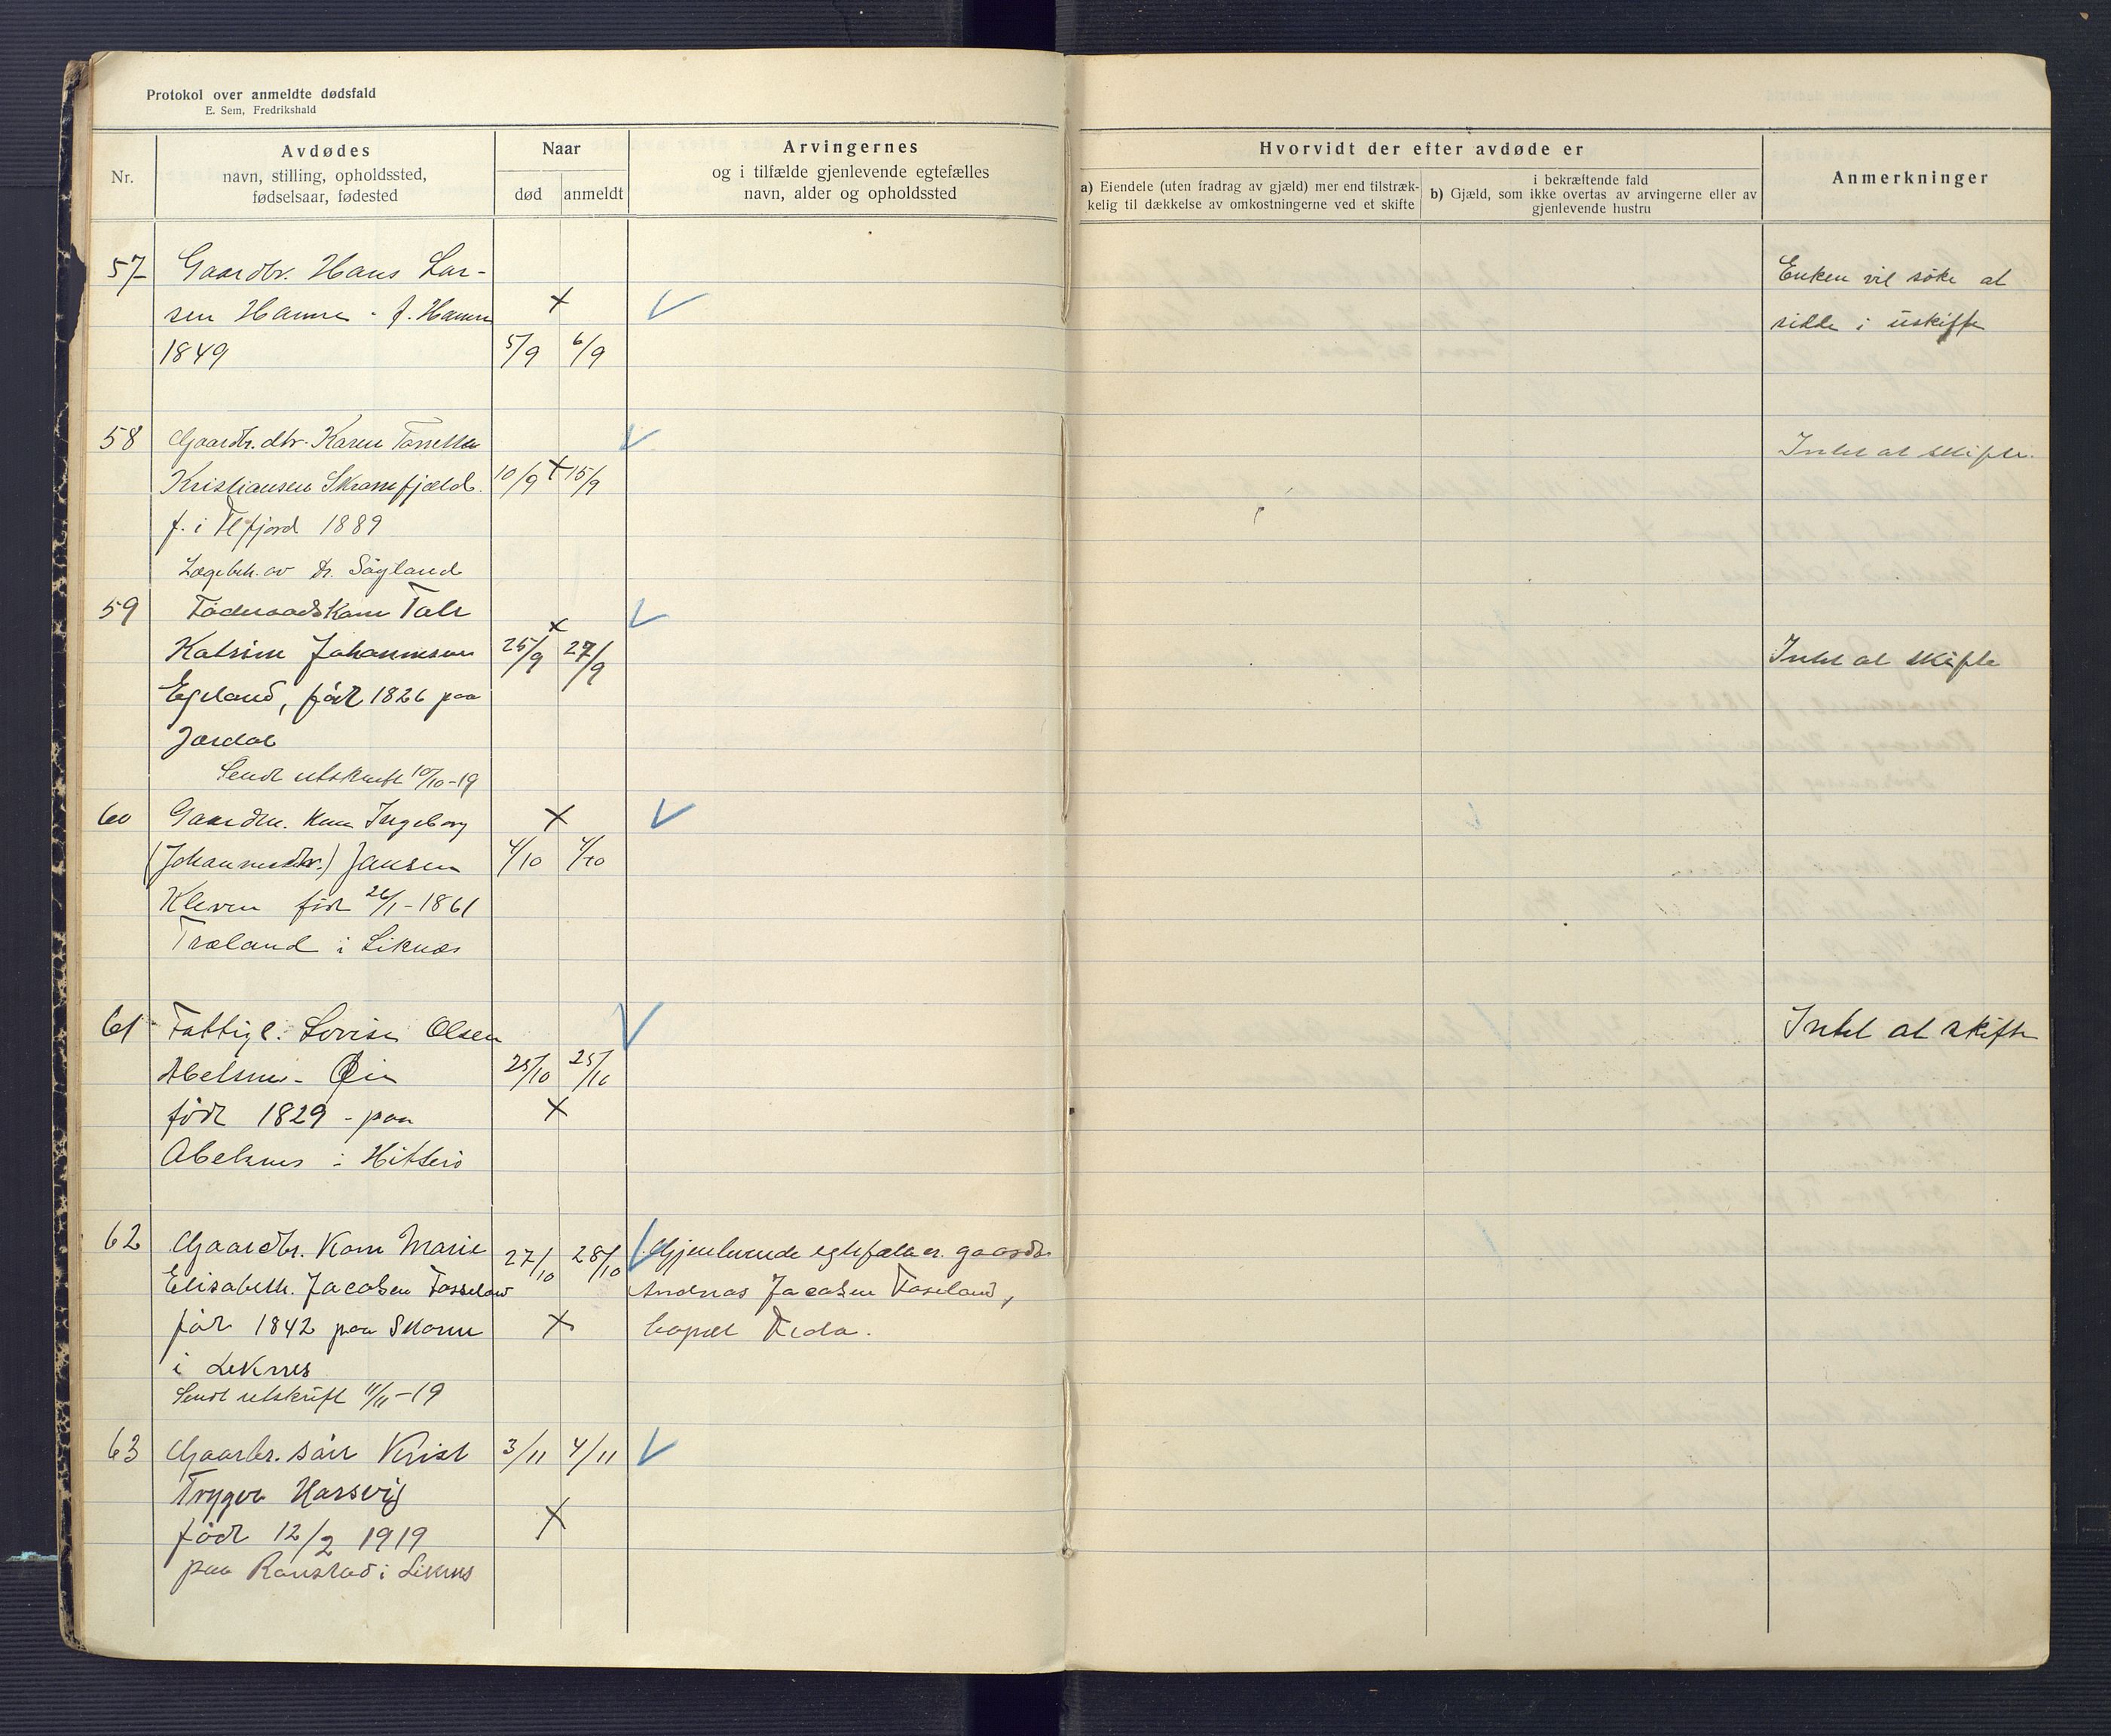 Protokol over anmeldte dødsfald
E. Sem, Fredrikshald
Nr.
Avdødes
navn, stilling, opholdssted,
fødselsaar, fødested
Naar
død
anmeldt
Arvingernes
og i tilfælde gjenlevende egtefælles
navn, alder og opholdssted
Hvorvidt der efter avdøde er
a) Eiendele (uten fradrag av gjæld) mer end tilstræk-
kelig til dækkelse av omkostningerne ved et skifte
i bekræftende fald
b) Gjæld, som ikke overtas av arvingerne eller av
gjenlevende hustru
Anmerkninger
57 Gaardbr. Hans Lar-
sen Hamre - f. Hamre
1849
5/9 6/9
Enken vil söke at
sidde i uskifte
58 Gaardbr. dtr. Karen
Kristiansen
10/9 15/9
f. i 1889
Lægebeh. av Dr.
Intet at skifte.
59 Föderaadskone Tale
Katrine Johannesen
25/9 27/9
Egeland, født 1826 paa
Jardal
Sendt utskrift 10/10-19
Intet at skifte
60 Gaardbr. kone Ingeborg
(Johannesdtr.) Jansen
4/10 4/10
Kleven født 26/1-1861
Træland i Liknes
61 Fattigl. Lovise Olsen
Abelsnes - Øie
25/10 25/10
født 1829 - paa
Abelsnes i Hitterö
Intet at skifte
62 Gaardbr. Kone Marie
Elisabeth Jacobsen
27/10 28/10
født 1842 paa
i Liknes
Sendt utskrift 11/11-19
Gjenlevende egtefælle er gaardbr.
Andreas Jacobsen Foseland,
bopæl Feda.
63 Gaardbr. sön Krist
3/11 4/11
Trygve Hassvig
født 12/2 1919
paa i Liknes